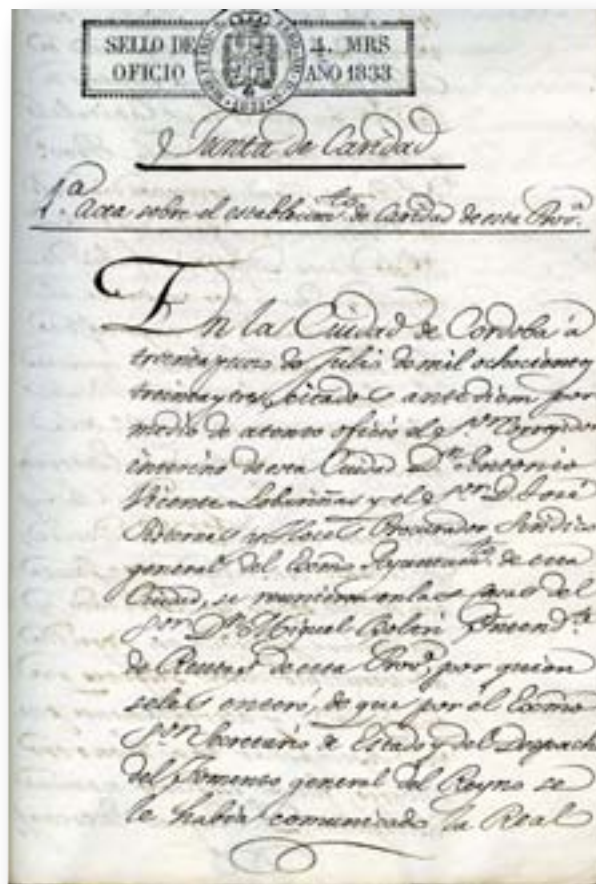 SELLO DE 4. MRS
OFICIO AÑO 1833
Junta de Caridad
1.ª Acta sobre el establecim.to de Caridad de esta Prov.a
En la Ciudad de Cordoba á
treinta y uno de Julio de mil ochocientos
treinta y tres, citados ante diem por
medio de atento oficio el S.or Corregidor
interino de esta Ciudad D.n Antonio
Vicente y el S.or D. José
Procurador Sindico
general del Excmo Ayuntam.to de esta
Ciudad, se reunieron en las casas del
S.or D.n Miguel Boltri Yntend.te
de Rentas de esta Prov.a, por quien
se les enteró, de que por el Excmo
S.or Secretario de Estado y del Despacho
del Fomento general del Reyno se
le habia comunicado la Real